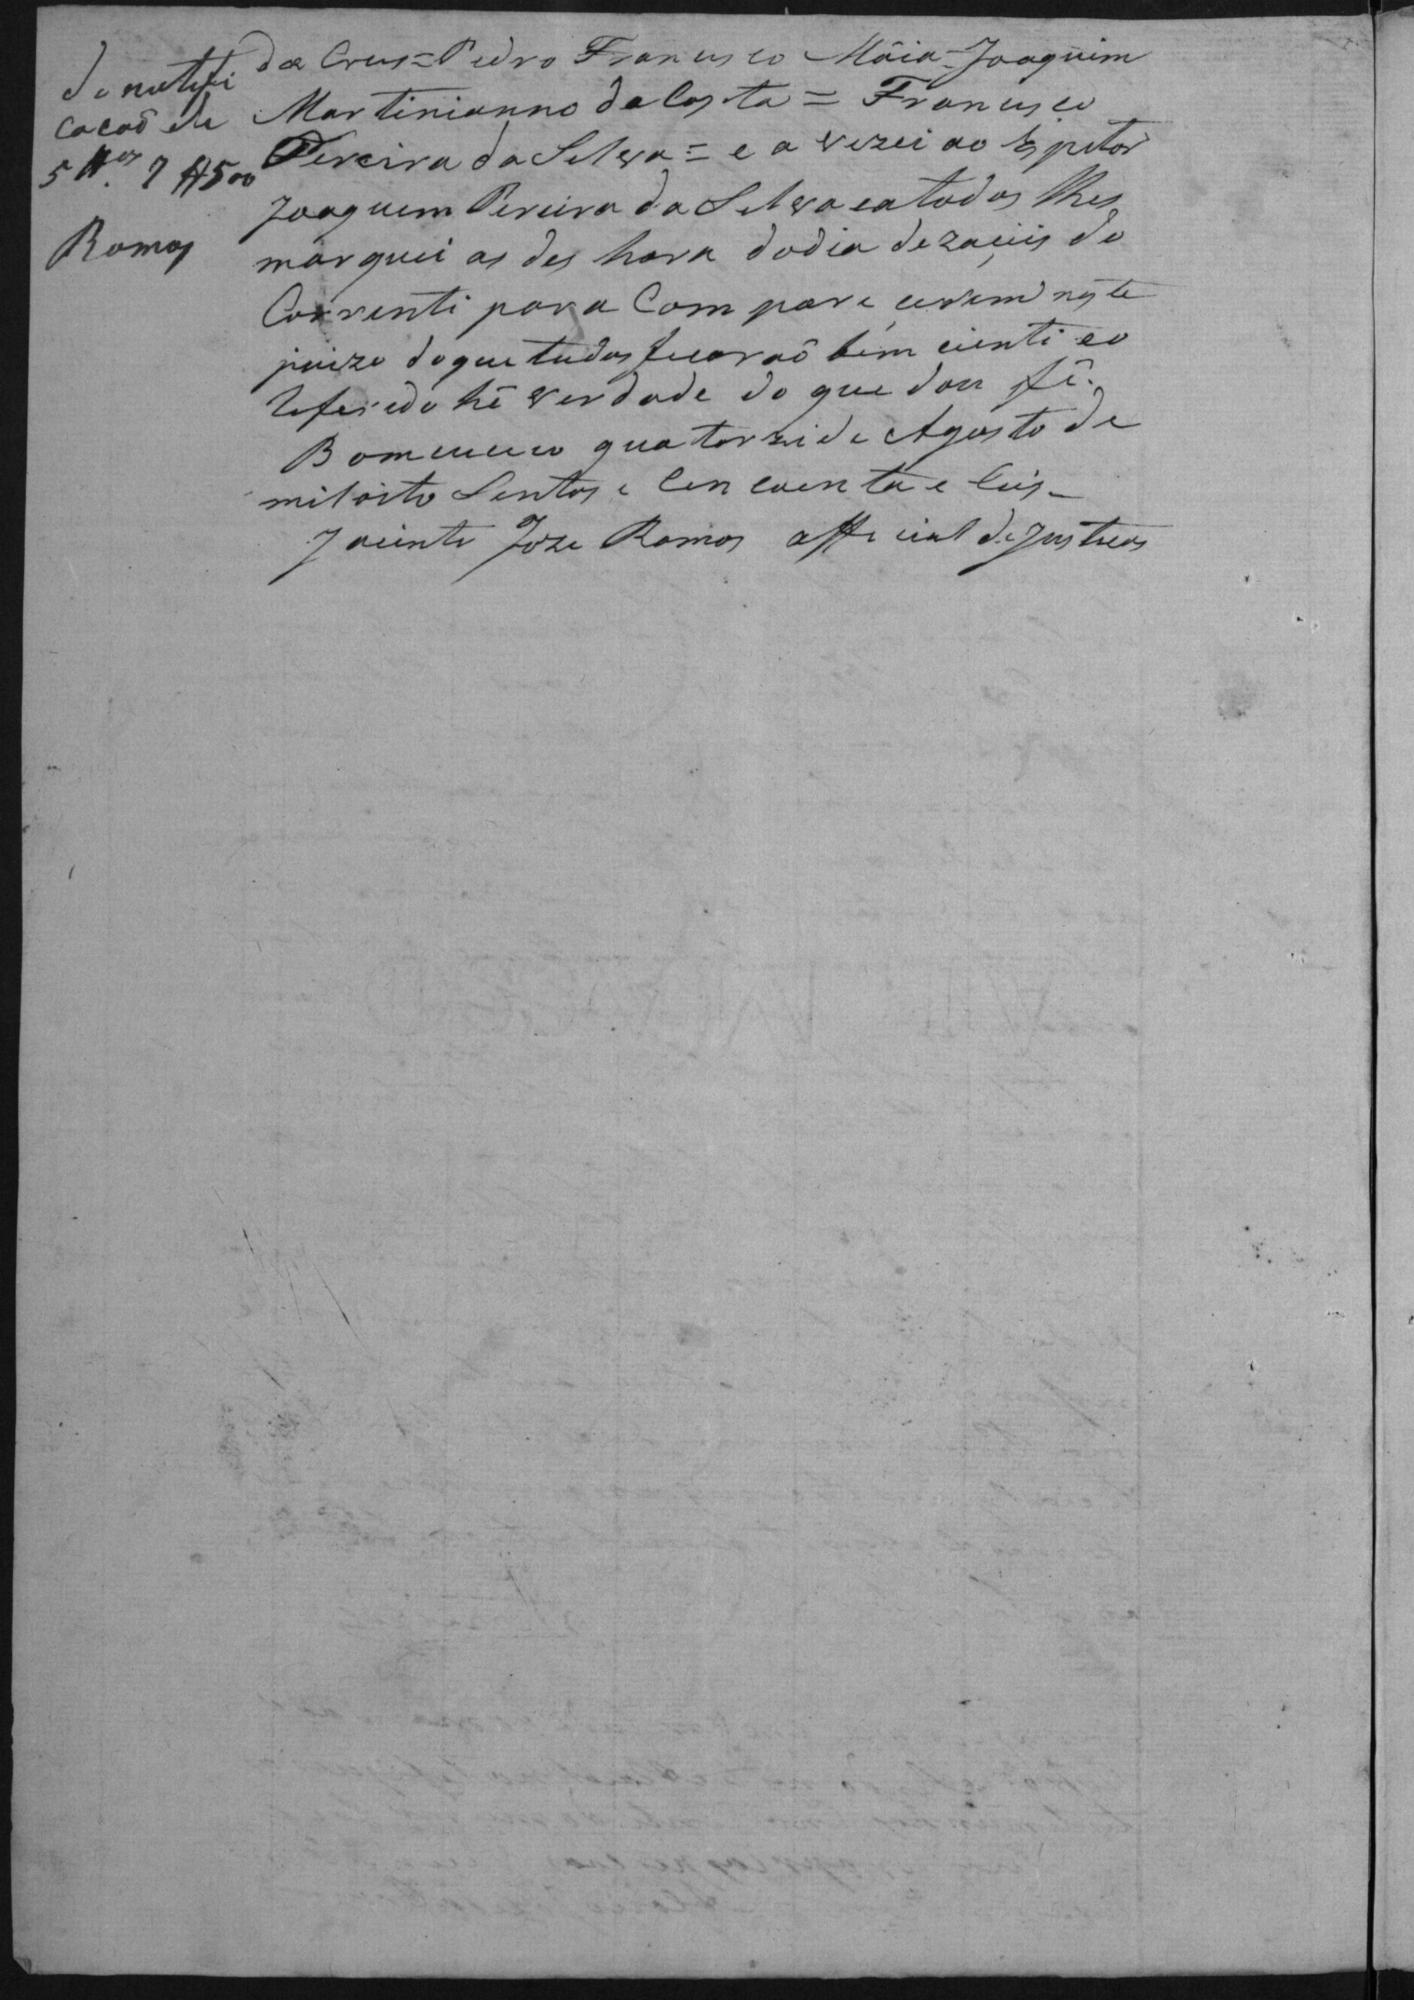 de notefi
cacaõ de
5 7#500
Ramos
da Crus = Pedro Francisco Mâia = Joaquim
Martinianno da Costa = Francisco
Pereira da Selva = e a vezei ao Espetor
Joaquem Pereira da Selva e a todos lhes
marquei as des hora do dia dezaceis do
Corrente para Com pare cerem neste
juizo do que tudos ficaraõ bem ciente eo
Referedo hê verdade do que dou fê.
quatorze de Agosto de
mil oito Sentos e Cencoenta e Ceis
Jacinto Joze Ramos official de Justicas